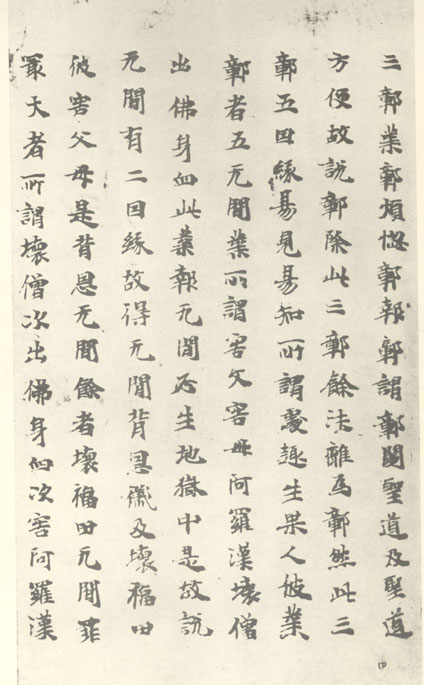 三鄣業鄣煩惱鄣報鄣謂鄣閡聖道及聖道
方便故說鄣除此三鄣餘法雖為鄣然此三
鄣五因緣易見易知所謂處趣生果人彼業
鄣者五无間業所謂害父害母阿羅漢壞僧
出佛身血此業報无間必生地獄中是故說
无間有二因緣故得无間背恩儀及壞福田
彼害父母是背恩无間餘者壞福田无間罪
冣大者所謂壞僧次出佛身血次害阿羅漢